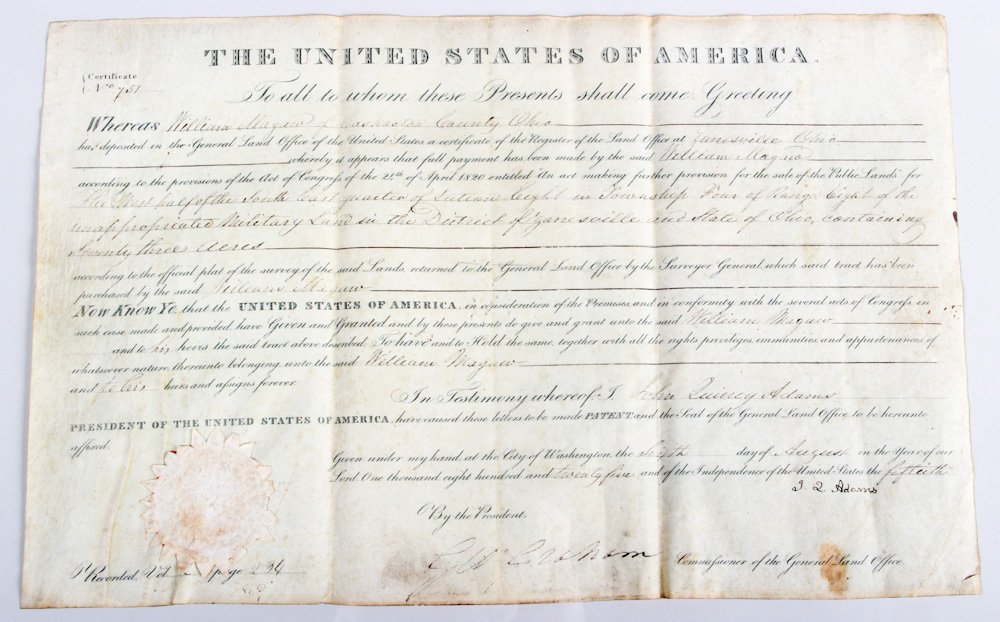 THE UNITED STATES OF AMERICA.
Certificate
No. 751
To all to whom these Presents shall come, Greeting
Whereas William Magaw of Coshocton County Ohio
has deposited in the General Land Office of the United States a certificate of the Register of the Land Office at Zanesville Ohio
whereby it appears that full payment has been made by the said William Magaw
according to the provisions of the Act of Congress of the 24th of April 1820 entitled An act making further provision for the sale of the Public Lands for
The West half of the South East quarter of Section Eight in Township Four of Range Eight of the
unappropriated Military Land in the District of Zanesville and State of Ohio, containing
Seventy three Acres
according to the official plat of the survey of the said Lands, returned to the General Land Office by the Surveyor General, which said tract has been
purchased by the said William Magaw
Now Know Ye, that the UNITED STATES OF AMERICA, in consideration of the Premises and in conformity with the several acts of Congress, in
such case made and provided, have Given and Granted and by these presents do give and grant unto the said William Magaw
and to his heirs the said tract above described: To have and to Hold the same, together with all the rights, privileges, immunities, and appurtenances of
whatsoever nature, thereunto belonging, unto the said William Magaw
and to his heirs and assigns forever.
In Testimony whereof, I, John Quincy Adams
PRESIDENT OF THE UNITED STATES OF AMERICA, have caused these letters to be made PATENT, and the Seal of the General Land Office to be hereunto
affixed.
Given under my hand, at the City of Washington, the Sixth day of August in the Year of our
Lord One thousand, eight hundred and twenty five and of the Independence of the United States the fiftieth
J. Q. Adams
By the President.
Geo. Graham Commissioner of the General Land Office.
Recorded, Vol page 294